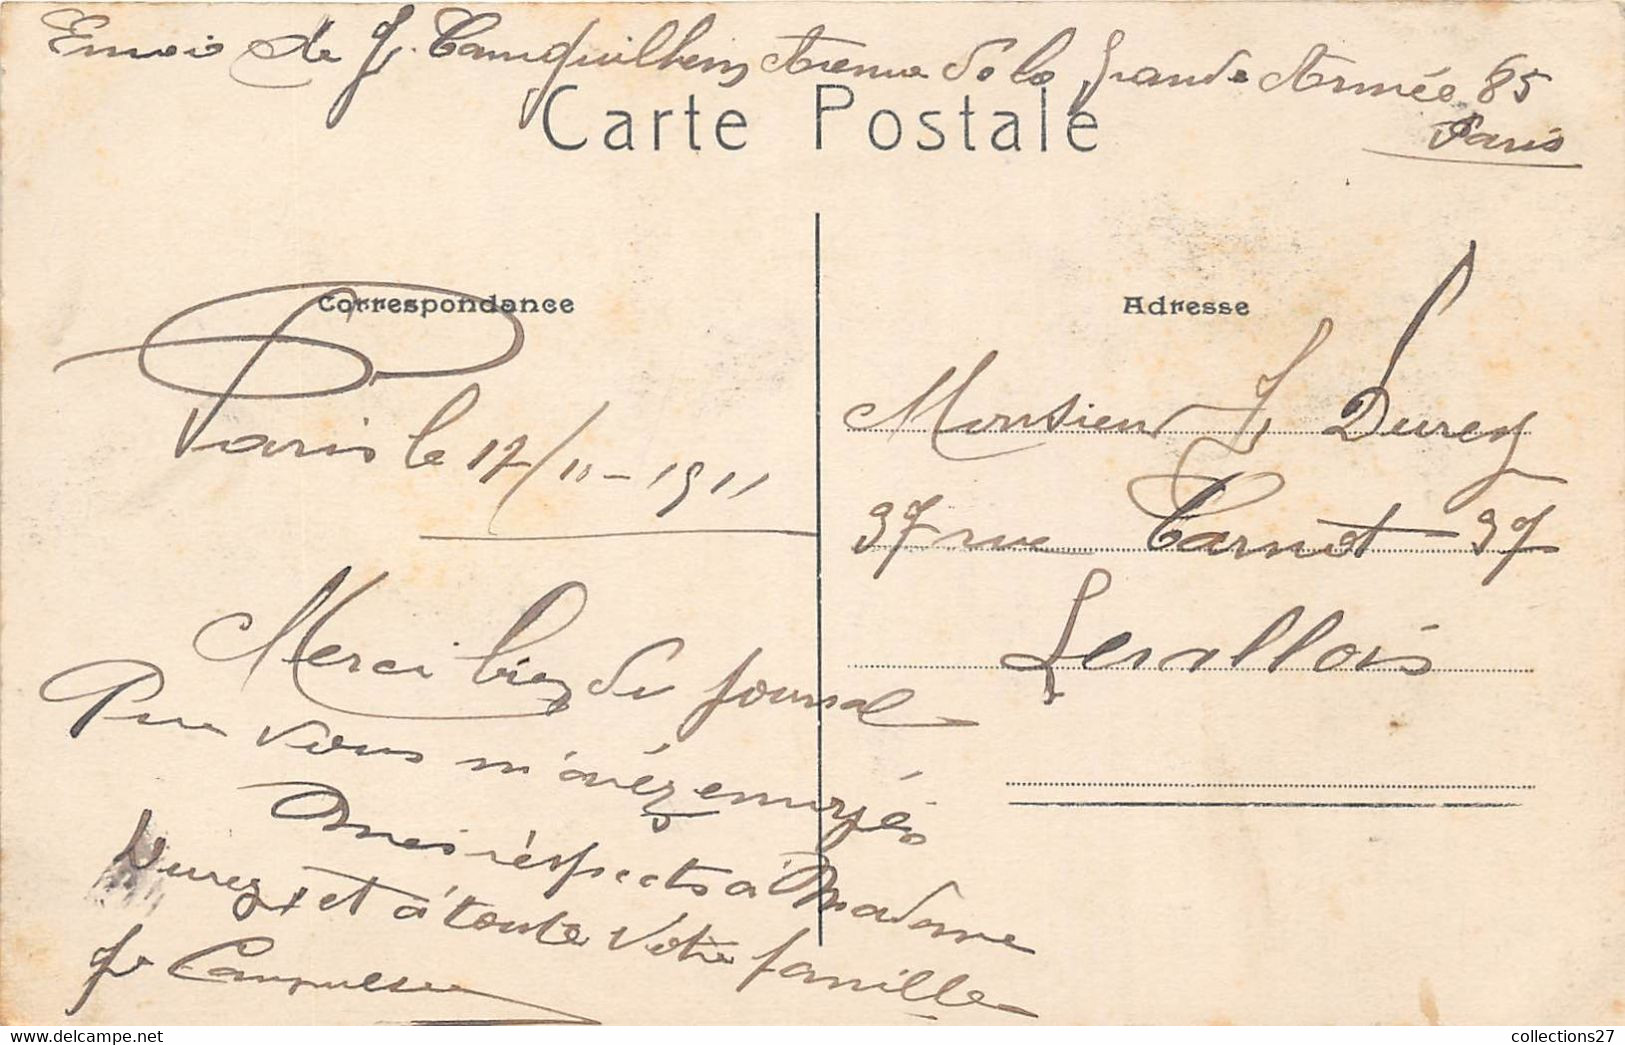 Envoi de J. Campguilhem Avenue de la Grande Armée 85
Paris
Carte Postale
Correspondance
Paris le 17/11-1911
Merci bien du journal
que vous m'avéz envoyés
mes réspects à Madame
Durey, et à toute Votre famille
J
Adresse
Monsieur J. Durey
37 rue Carnot - 37
Levallois
collections27